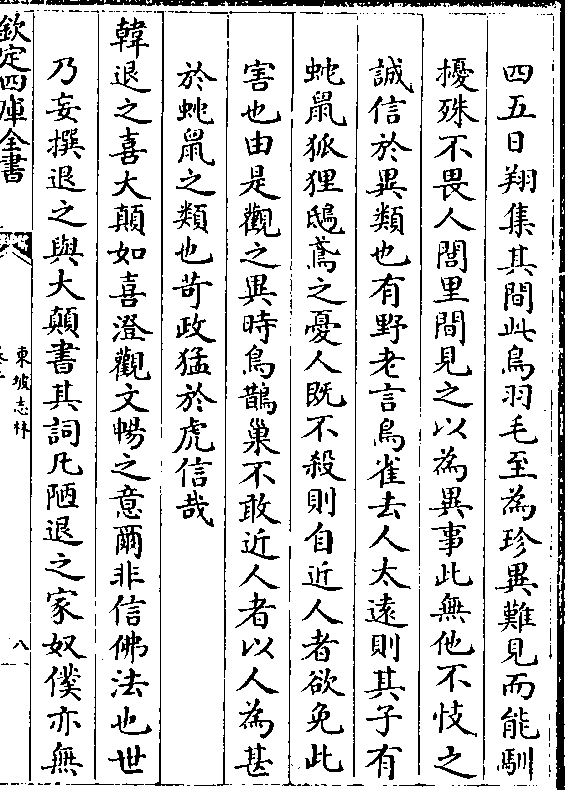 四五日翔集其間此鳥羽毛至為珍異難見而能馴
擾殊不畏人閭里間見之以為異事此無他不忮之
誠信於異類也有野老言鳥雀去人太遠則其子有
蛇鼠狐狸鴟鳶之憂人既不殺則自近人者欲免此
害也由是觀之異時鳥鵲巢不敢近人者以人為甚
於蛇鼠之類也苛政猛於虎信哉
韓退之喜大顛如喜澄觀文暢之意爾非信佛法也世
乃妄撰退之與大顛書其詞凡陋退之家奴僕亦無
欽定四庫全書
東坡志林
八